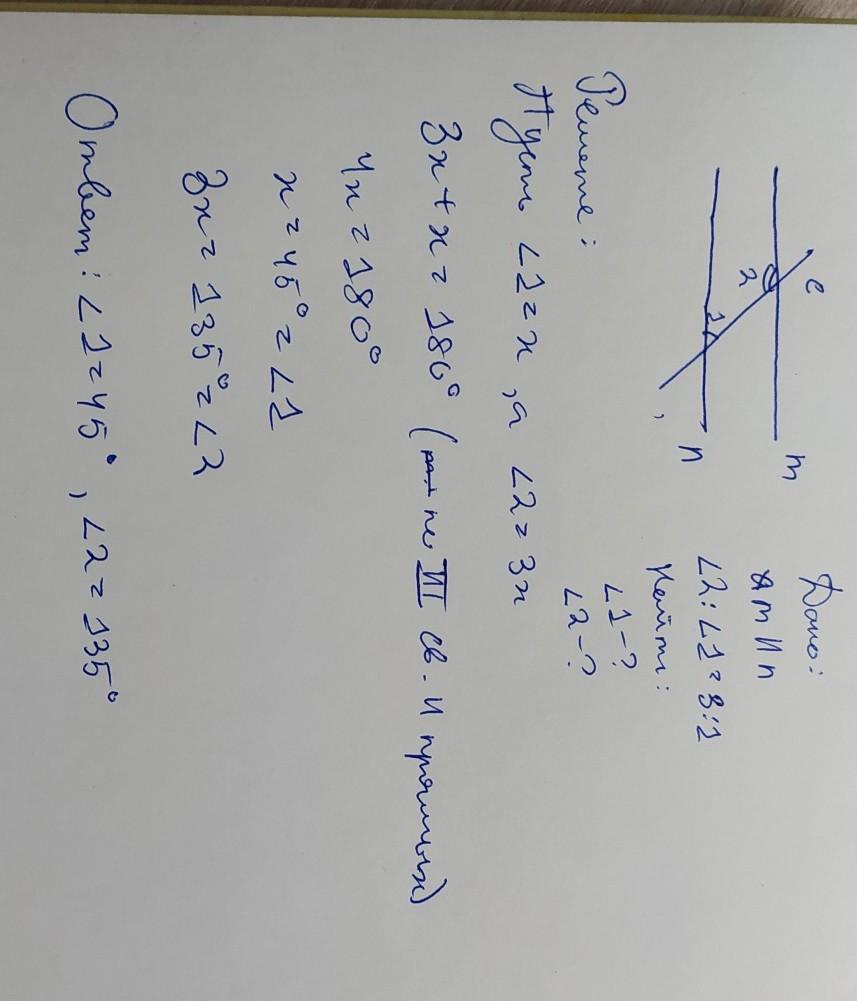 Дано:
m || n
∠2 : ∠1 = 3:1
Найти:
∠1 - ?
∠2 - ?
c
m
2
1
n
Решение:
Пусть ∠1 = x, а ∠2 = 3x
3x + x = 180° (по III св. || прямых)
4x = 180°
x = 45° = ∠1
3x = 135° = ∠2
Ответ: ∠1 = 45°, ∠2 = 135°